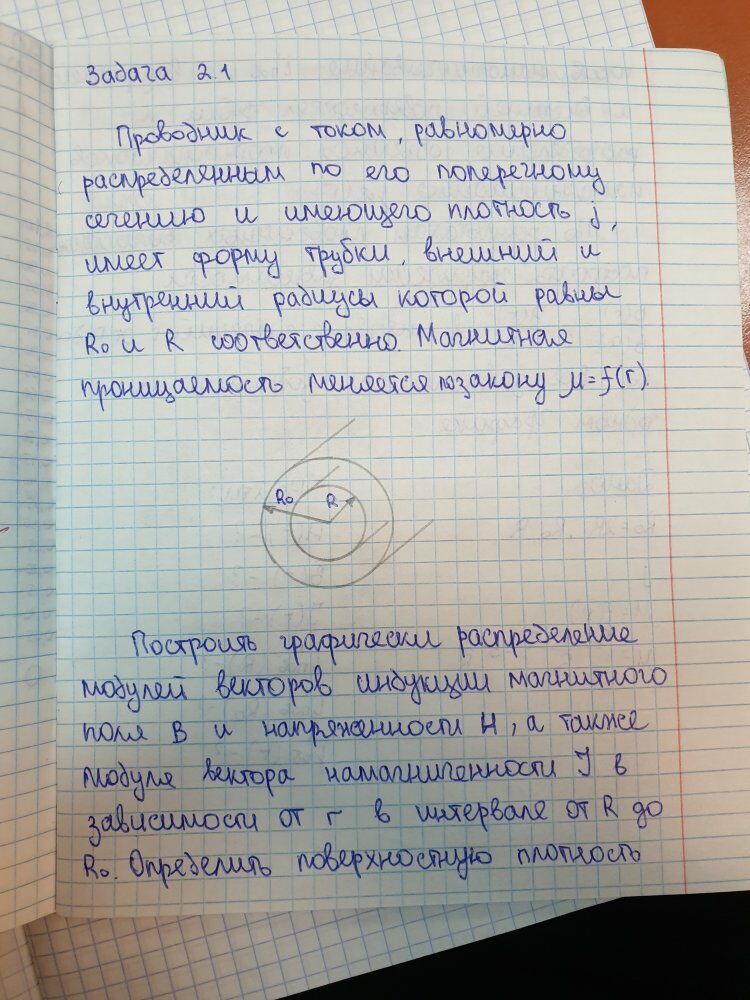 Задача 2.1
Проводник с током, равномерно
распределенным по его поперечному
сечению и имеющего плотность j,
имеет форму трубки, внешний и
внутренний радиусы которой равны
R₀ и R соответственно. Магнитная
проницаемость меняется по закону μ=f(r).
R₀ R
Построить графически распределение
модулей векторов индукции магнитного
поля B и напряженности H, а также
модуля вектора намагниченности J в
зависимости от r в интервале от R до
R₀. Определить поверхностную плотность